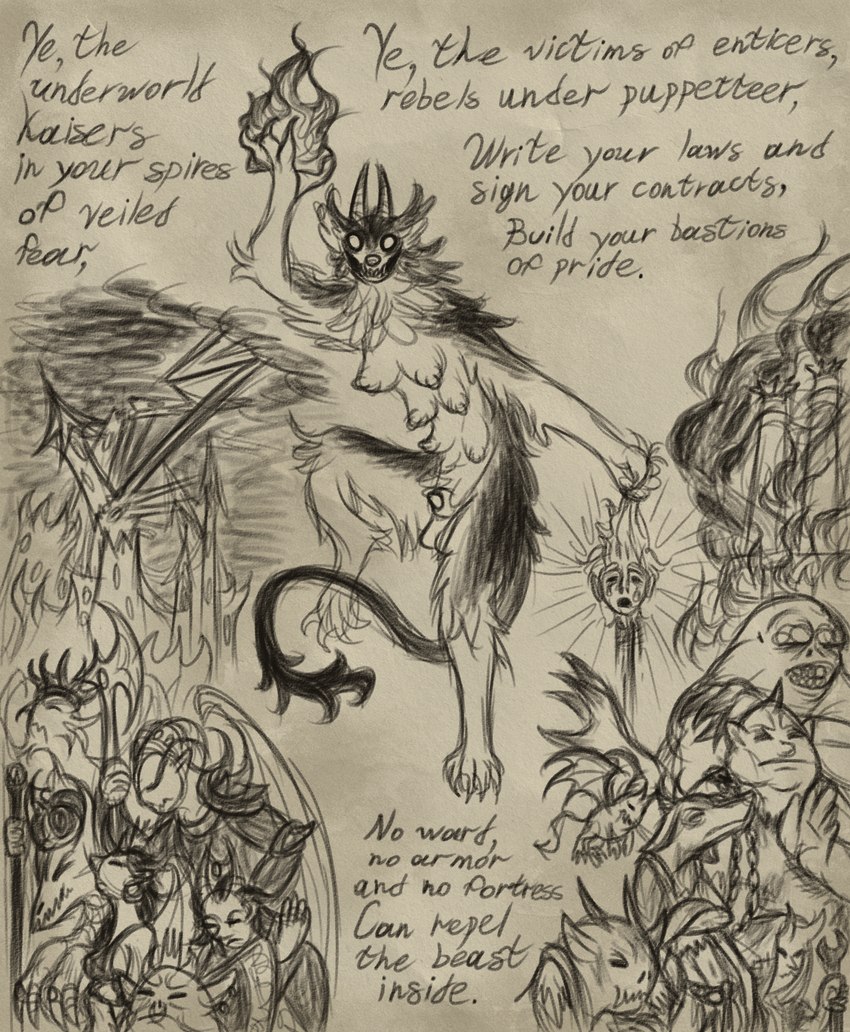 Ye, the
underworld
Kaisers
in your spires
of veiled
fear,
Ye, the victims of enticers,
rebels under puppetteer,
Write your laws and
sign your contracts,
Build your bastions
of pride.
No ward,
no armor
and no fortress
Can repel
the beast
inside.